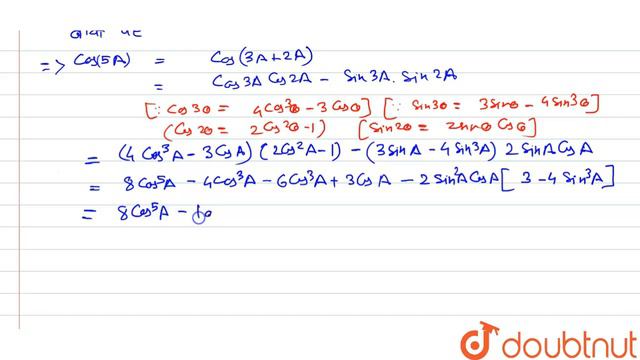 => Cos(5A) = Cos(3A+2A)
= Cos3A Cos2A - Sin3A. Sin2A
[∵ Cos3θ = 4Cos³θ - 3Cosθ] [∵ Sin3θ = 3Sinθ - 4Sin³θ]
(Cos2θ = 2Cos²θ-1) [Sin2θ = 2sinθ Cosθ]
= (4Cos³A - 3CosA) (2Cos²A-1) - (3SinA - 4Sin³A) 2SinA CosA
= 8Cos⁵A - 4Cos³A - 6Cos³A + 3CosA - 2Sin²A CosA [3-4Sin²A]
= 8Cos⁵A - 10
doubtnut